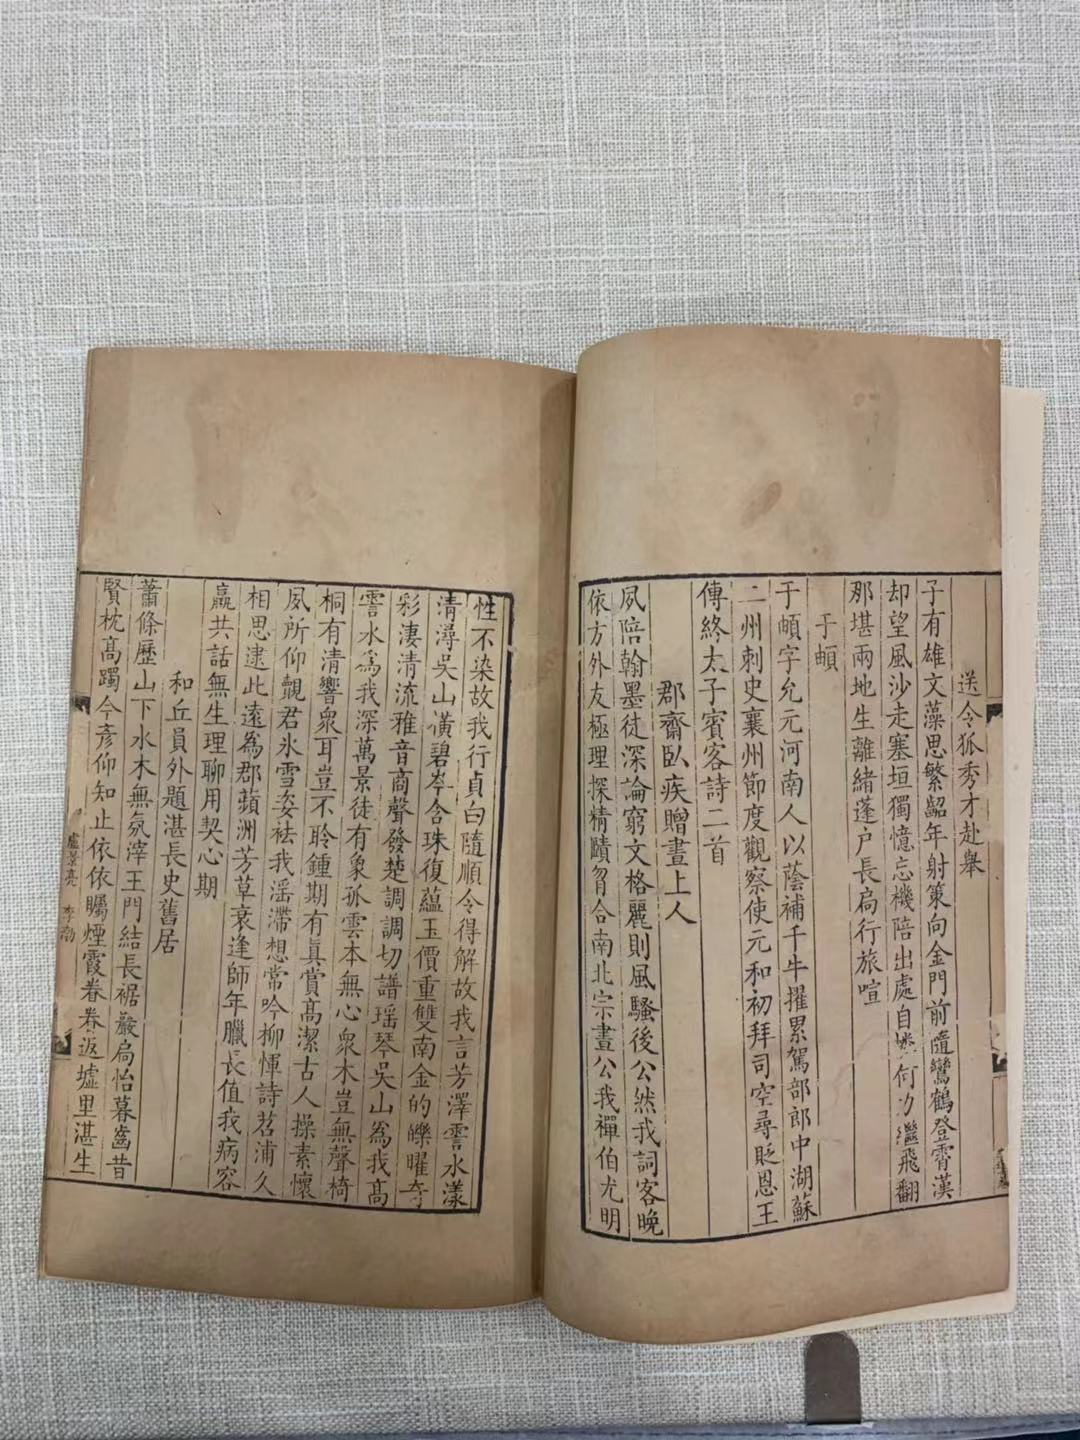 送令狐秀才赴舉
子有雄文藻思繁齠年射策向金門前隨鸞鶴登霄漢
却望風沙走塞垣獨憶忘機陪出處自憐何力繼飛翻
那堪兩地生離緒蓬户長扃行旅喧
于頔
于頔字允元河南人以蔭補千牛擢累駕部郎中湖蘇
二州刺史襄州節度觀察使元和初拜司空尋貶恩王
傅終太子賓客詩二首
郡齋臥疾贈晝上人
夙陪翰墨徒深論窮文格麗則風騷後公然我詞客晚
依方外友極理探精賾吻合南北宗晝公我禪伯尤明
性不染故我行貞白隨順令得解故我言芳澤霅水漾
清潯吳山橫碧岑含珠復蘊玉價重雙南金的皪曜奇
彩淒清流雅音商聲發楚調調切譜瑶琴吳山爲我高
霅水爲我深萬景徒有象孤雲本無心衆木豈無聲椅
桐有清響衆耳豈不聆鍾期有眞賞高潔古人操素懷
夙所仰覿君氷雪姿袪我滛滯想常吟柳惲詩苕浦久
相思逮此遠爲郡蘋洲芳草衰逢師年臘長值我病容
羸共話無生理聊用契心期
和丘員外題湛長史舊居
蕭條歷山下水木無氛滓王門結長裾巖扃怡暮齒昔
賢枕高躅今彦仰知止依依矚煙霞眷眷返墟里湛生
盧景亮 李渤